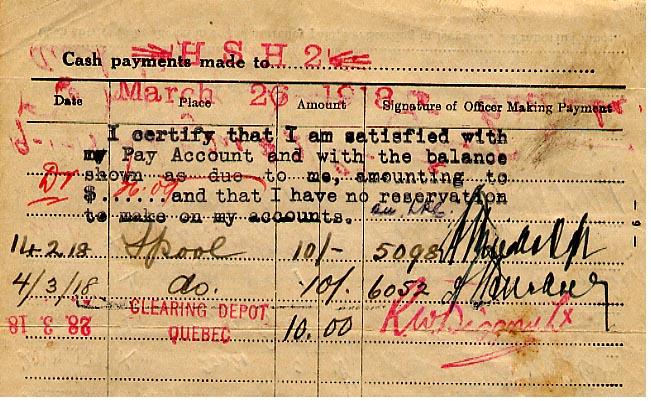 Cash payments made to H S H 2
March 26 1918
Date Place Amount Signature of Officer Making Payment
I certify that I am satisfied with
my Pay Account and with the balance
Dr shown as due to me, amounting to
$ 76.09 and that I have no reservation
to make on my accounts.
14 2 18 Spool 10/- 5098
4/3/18 do. 10/. 6052
28. 3. 18 CLEARING DEPOT
QUEBEC 10.00
- 9 -